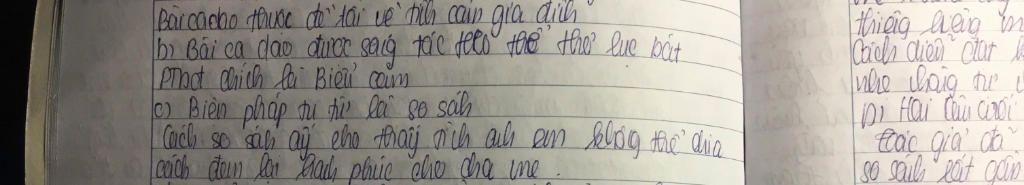 Bài ca dao thuộc đề tài về tình cảm gia đình
b) Bài ca dao được sáng tác theo thể thơ lục bát
PTbđ chính là Biểu cảm
c) Biện pháp tu từ là so sánh
Cách so sánh ấy cho thấy tình anh em không thể chia
cách đem lại hạnh phúc cho cha mẹ.
thiêng liêng
Cách diễn đạt
như
D) Hai câu cuối
tác giả đã
so sánh rất gần